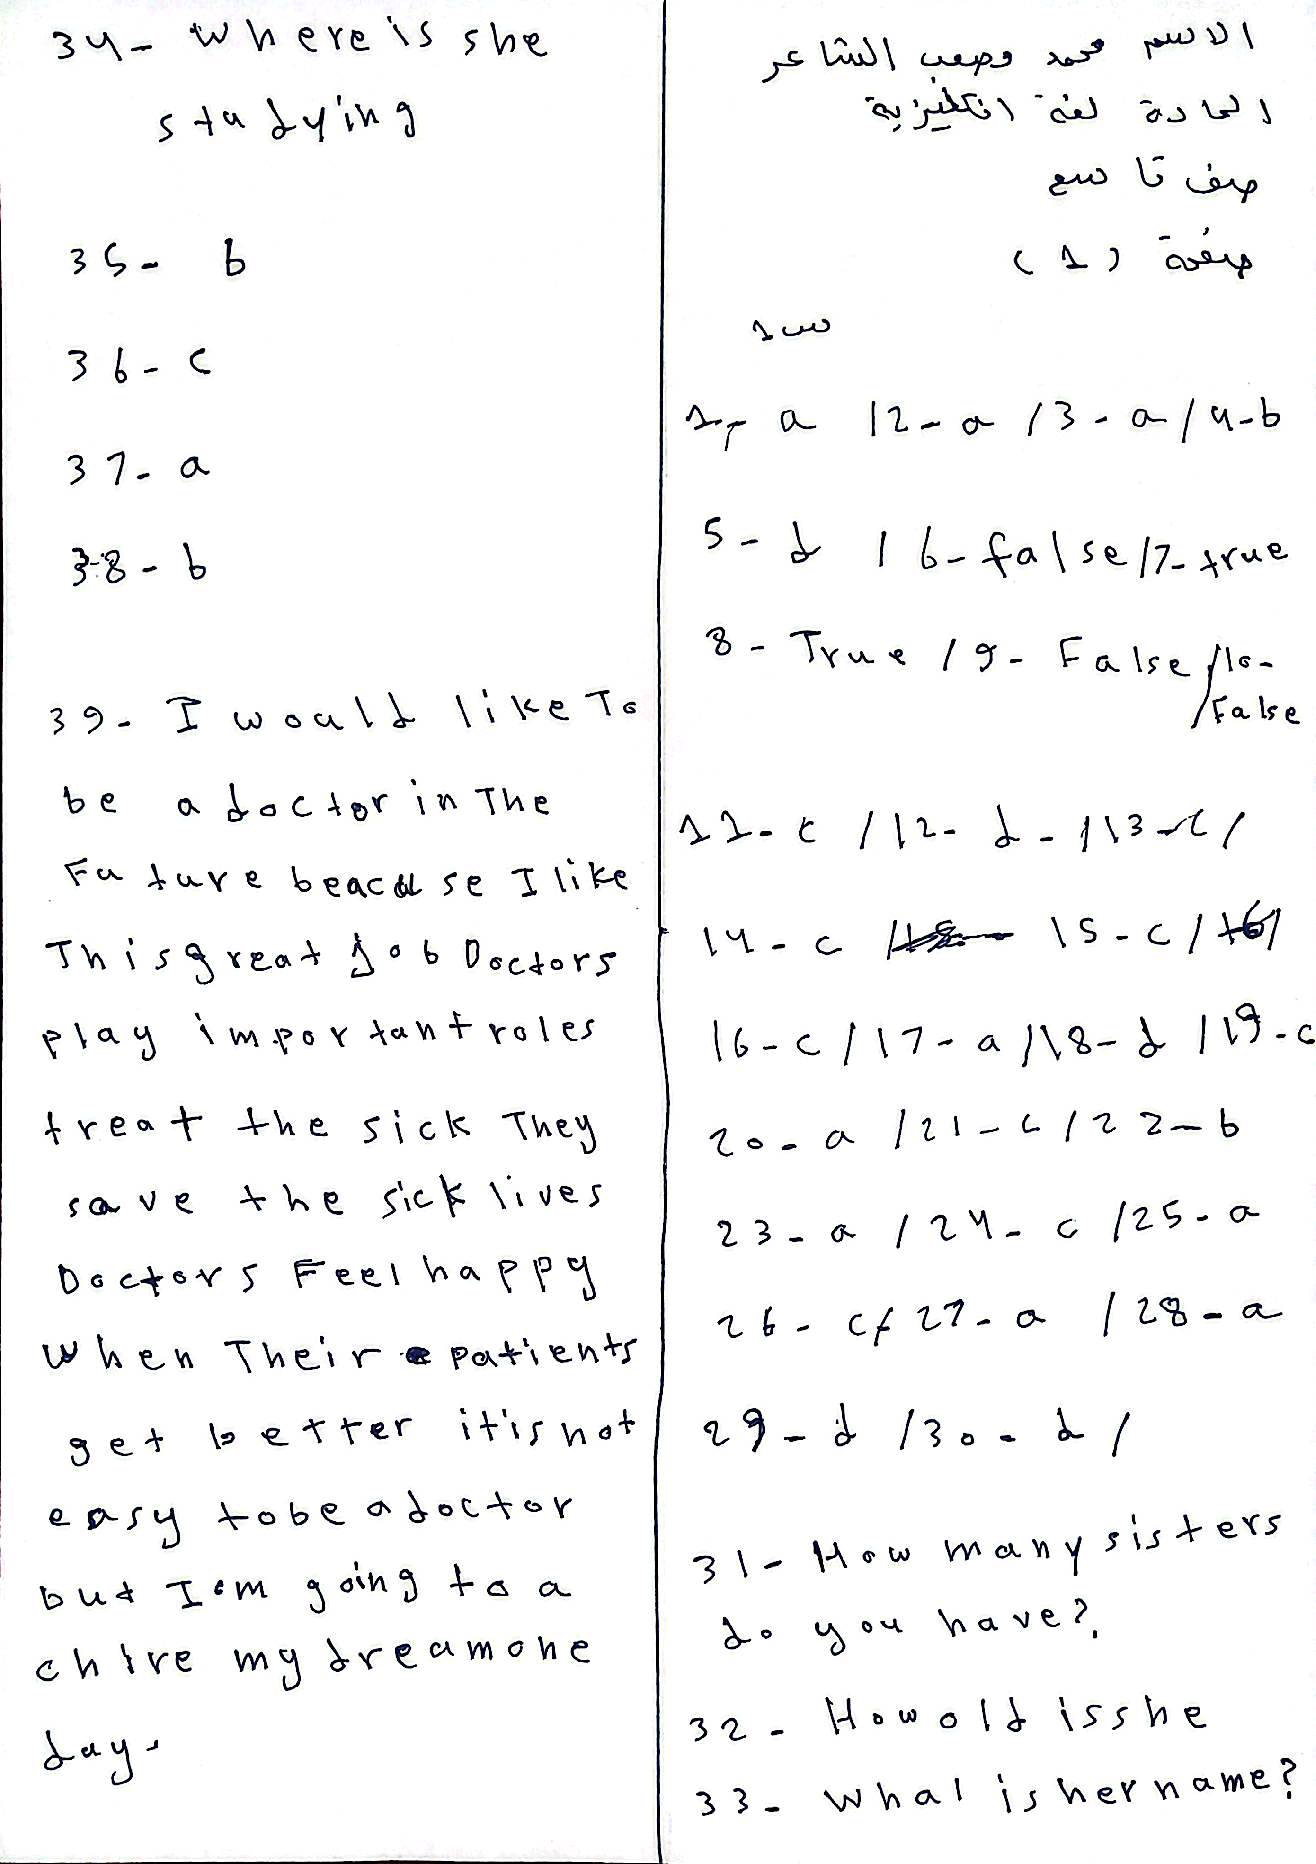 الاسم محمد وصعب الشاعر
المادة لغة انكليزية
صف تا سع
صفحة (1)
س1
1- a /2-a /3-a/4-b
5-d / 6-false/7-true
8-True /9-False/10-
False
11-c /12-d-/13-c/
14-c 15-c/16/
16-c/17-a/18-d/19-c
20-a /21-c/22-b
23-a /24-c /25-a
26-c/27-a /28-a
29-d /30-d/
31-How many sisters
do you have?
32-How old is she
33-whal is her name?
34-where is she
studying
35-b
36-c
37-a
38-b
39-I would like To
be a doctor in The
Future beacuse I like
This great job Doctors
play important roles
treat the sick They
save the sick lives
Doctors Feel happy
when Their patients
get better it'is not
easy to be a doctor
but I am going to a
chive my dream one
day.